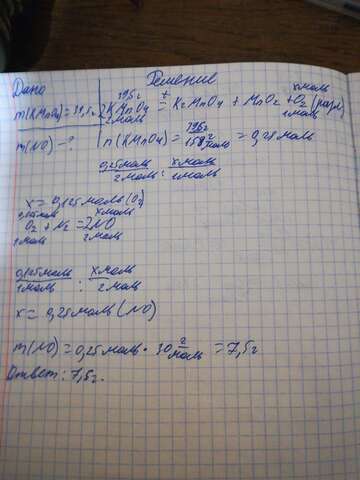 Дано Решение
39,5г х моль
m(KMnO4)=39,5г 2KMnO4 t= K2MnO4 + MnO2 + O2 (разл)
2моль 1моль
m(NO)-? n(KMnO4)= 39,5г / 158 г/моль = 0,25 моль
0,25моль / 2 моль : х моль / 1моль
х = 0,125 моль (O2)
0,125моль х моль
O2 + N2 = 2NO
1моль 2моль
0,125 моль / 1моль : х моль / 2моль
х = 0,25 моль (NO)
m(NO)=0,25 моль · 30 г/моль = 7,5г
Ответ: 7,5г.